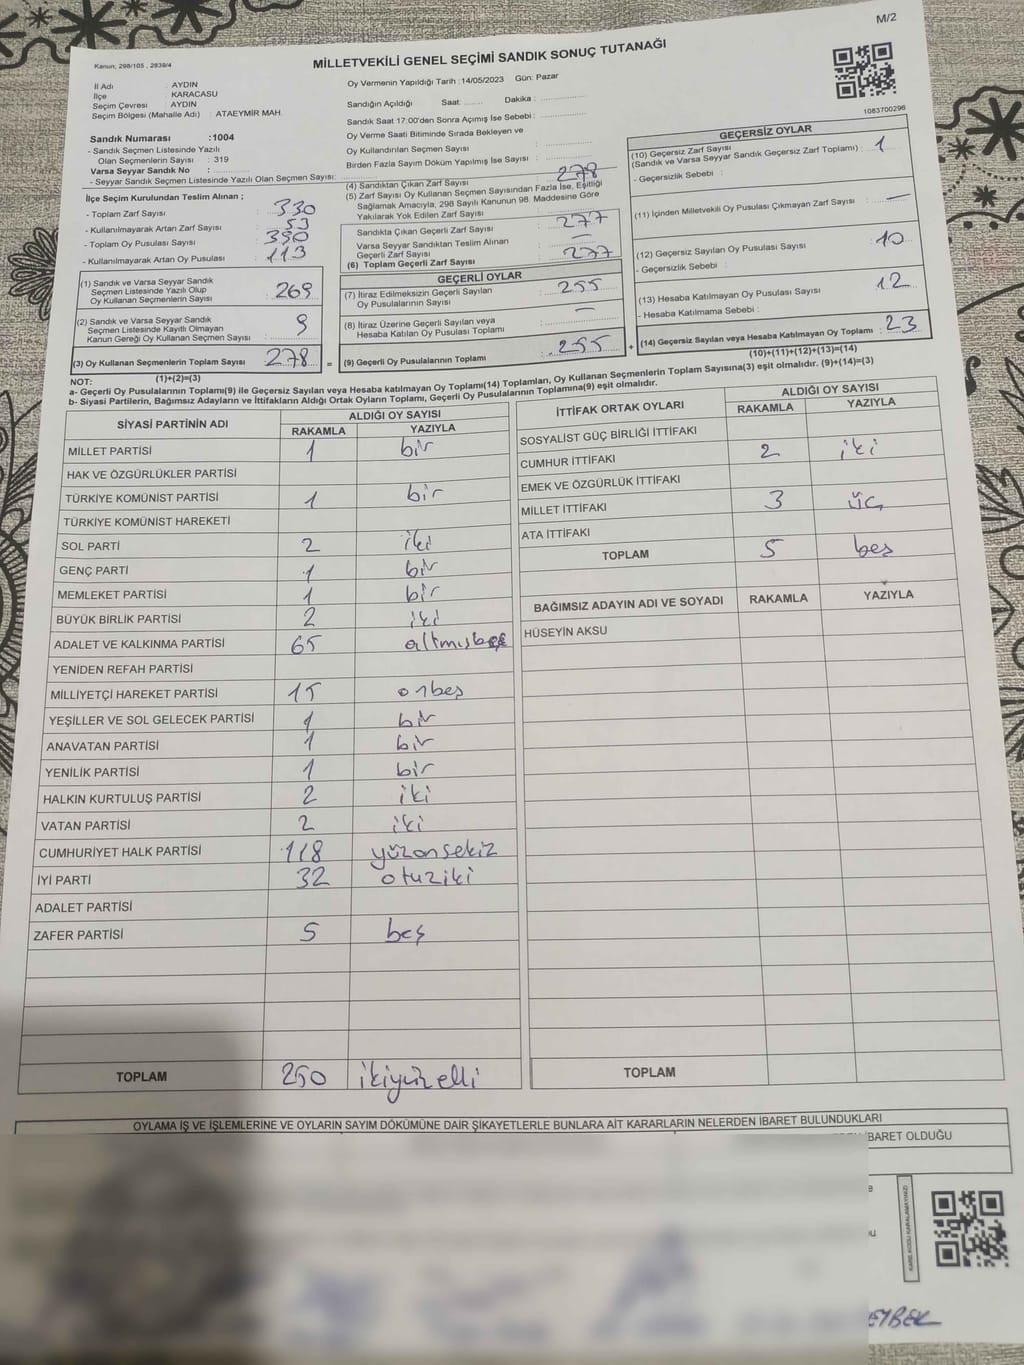 M/2
Kanun; 298/105 , 2839/4
MİLLETVEKİLİ GENEL SEÇİMİ SANDIK SONUÇ TUTANAĞI
İl Adı : AYDIN
İlçe : KARACASU
Seçim Çevresi : AYDIN
Seçim Bölgesi (Mahalle Adı) : ATAEYMİR MAH.
Sandık Numarası :1004
- Sandık Seçmen Listesinde Yazılı
Olan Seçmenlerin Sayısı : 319
Varsa Seyyar Sandık No :
- Seyyar Sandık Seçmen Listesinde Yazılı Olan Seçmen Sayısı:
Oy Vermenin Yapıldığı Tarih :14/05/2023 Gün: Pazar
Sandığın Açıldığı Saat: Dakika :
Sandık Saat 17:00'den Sonra Açımış İse Sebebi :
Oy Verme Saati Bitiminde Sırada Bekleyen ve
Oy Kullandırılan Seçmen Sayısı :
Birden Fazla Sayım Döküm Yapılmış İse Sayısı :
1083700296
İlçe Seçim Kurulundan Teslim Alınan ;
- Toplam Zarf Sayısı : 330
- Kullanılmayarak Artan Zarf Sayısı : 53
- Toplam Oy Pusulası Sayısı : 390
- Kullanılmayarak Artan Oy Pusulası : 113
(1) Sandık ve Varsa Seyyar Sandık
Seçmen Listesinde Yazılı Olup
Oy Kullanan Seçmenlerin Sayısı : 269
(2) Sandık ve Varsa Seyyar Sandık
Seçmen Listesinde Kayıtlı Olmayan
Kanun Gereği Oy Kullanan Seçmen Sayısı : 9
(3) Oy Kullanan Seçmenlerin Toplam Sayısı 278 =
(1)+(2)=(3)
(4) Sandıktan Çıkan Zarf Sayısı : 278
(5) Zarf Sayısı Oy Kullanan Seçmen Sayısından Fazla İse, Eşitliği
Sağlamak Amacıyla, 298 Sayılı Kanunun 98. Maddesine Göre
Yakılarak Yok Edilen Zarf Sayısı :
Sandıkta Çıkan Geçerli Zarf Sayısı : 277
Varsa Seyyar Sandıktan Teslim Alınan
Geçerli Zarf Sayısı : —
(6) Toplam Geçerli Zarf Sayısı : 277
GEÇERLİ OYLAR
(7) İtiraz Edilmeksizin Geçerli Sayılan
Oy Pusulalarının Sayısı : 255
(8) İtiraz Üzerine Geçerli Sayılan veya
Hesaba Katılan Oy Pusulası Toplamı : —
(9) Geçerli Oy Pusulalarının Toplamı : 255 +
GEÇERSİZ OYLAR
(10) Geçersiz Zarf Sayısı
(Sandık ve Varsa Seyyar Sandık Geçersiz Zarf Toplamı) : 1
- Geçersizlik Sebebi :
(11) İçinden Milletvekili Oy Pusulası Çıkmayan Zarf Sayısı : —
(12) Geçersiz Sayılan Oy Pusulası Sayısı : 10
- Geçersizlik Sebebi :
(13) Hesaba Katılmayan Oy Pusulası Sayısı : 12
- Hesaba Katılmama Sebebi :
(14) Geçersiz Sayılan veya Hesaba Katılmayan Oy Toplamı : 23
(10)+(11)+(12)+(13)=(14)
NOT:
a- Geçerli Oy Pusulalarının Toplamı(9) ile Geçersiz Sayılan veya Hesaba katılmayan Oy Toplamı(14) Toplamları, Oy Kullanan Seçmenlerin Toplam Sayısına(3) eşit olmalıdır. (9)+(14)=(3)
b- Siyasi Partilerin, Bağımsız Adayların ve İttifakların Aldığı Ortak Oyların Toplamı, Geçerli Oy Pusulalarının Toplamına(9) eşit olmalıdır.
SİYASİ PARTİNİN ADI ALDIĞI OY SAYISI
RAKAMLA YAZIYLA
MİLLET PARTİSİ 1 bir
HAK VE ÖZGÜRLÜKLER PARTİSİ
TÜRKİYE KOMÜNİST PARTİSİ 1 bir
TÜRKİYE KOMÜNİST HAREKETİ
SOL PARTİ 2 iki
GENÇ PARTİ 1 bir
MEMLEKET PARTİSİ 1 bir
BÜYÜK BİRLİK PARTİSİ 2 iki
ADALET VE KALKINMA PARTİSİ 65 altmışbeş
YENİDEN REFAH PARTİSİ
MİLLİYETÇİ HAREKET PARTİSİ 15 onbeş
YEŞİLLER VE SOL GELECEK PARTİSİ 1 bir
ANAVATAN PARTİSİ 1 bir
YENİLİK PARTİSİ 1 bir
HALKIN KURTULUŞ PARTİSİ 2 iki
VATAN PARTİSİ 2 iki
CUMHURİYET HALK PARTİSİ 118 yüzonsekiz
İYİ PARTİ 32 otuziki
ADALET PARTİSİ
ZAFER PARTİSİ 5 beş
TOPLAM 250 ikiyüzelli
İTTİFAK ORTAK OYLARI ALDIĞI OY SAYISI
RAKAMLA YAZIYLA
SOSYALİST GÜÇ BİRLİĞİ İTTİFAKI
CUMHUR İTTİFAKI 2 iki
EMEK VE ÖZGÜRLÜK İTTİFAKI
MİLLET İTTİFAKI 3 üç
ATA İTTİFAKI
TOPLAM 5 beş
BAĞIMSIZ ADAYIN ADI VE SOYADI RAKAMLA YAZIYLA
HÜSEYİN AKSU
TOPLAM
OYLAMA İŞ VE İŞLEMLERİNE VE OYLARIN SAYIM DÖKÜMÜNE DAİR ŞİKAYETLERLE BUNLARA AİT KARARLARIN NELERDEN İBARET BULUNDUKLARI
İBARET OLDUĞU
KARE KODU KARALAMAYINIZ!